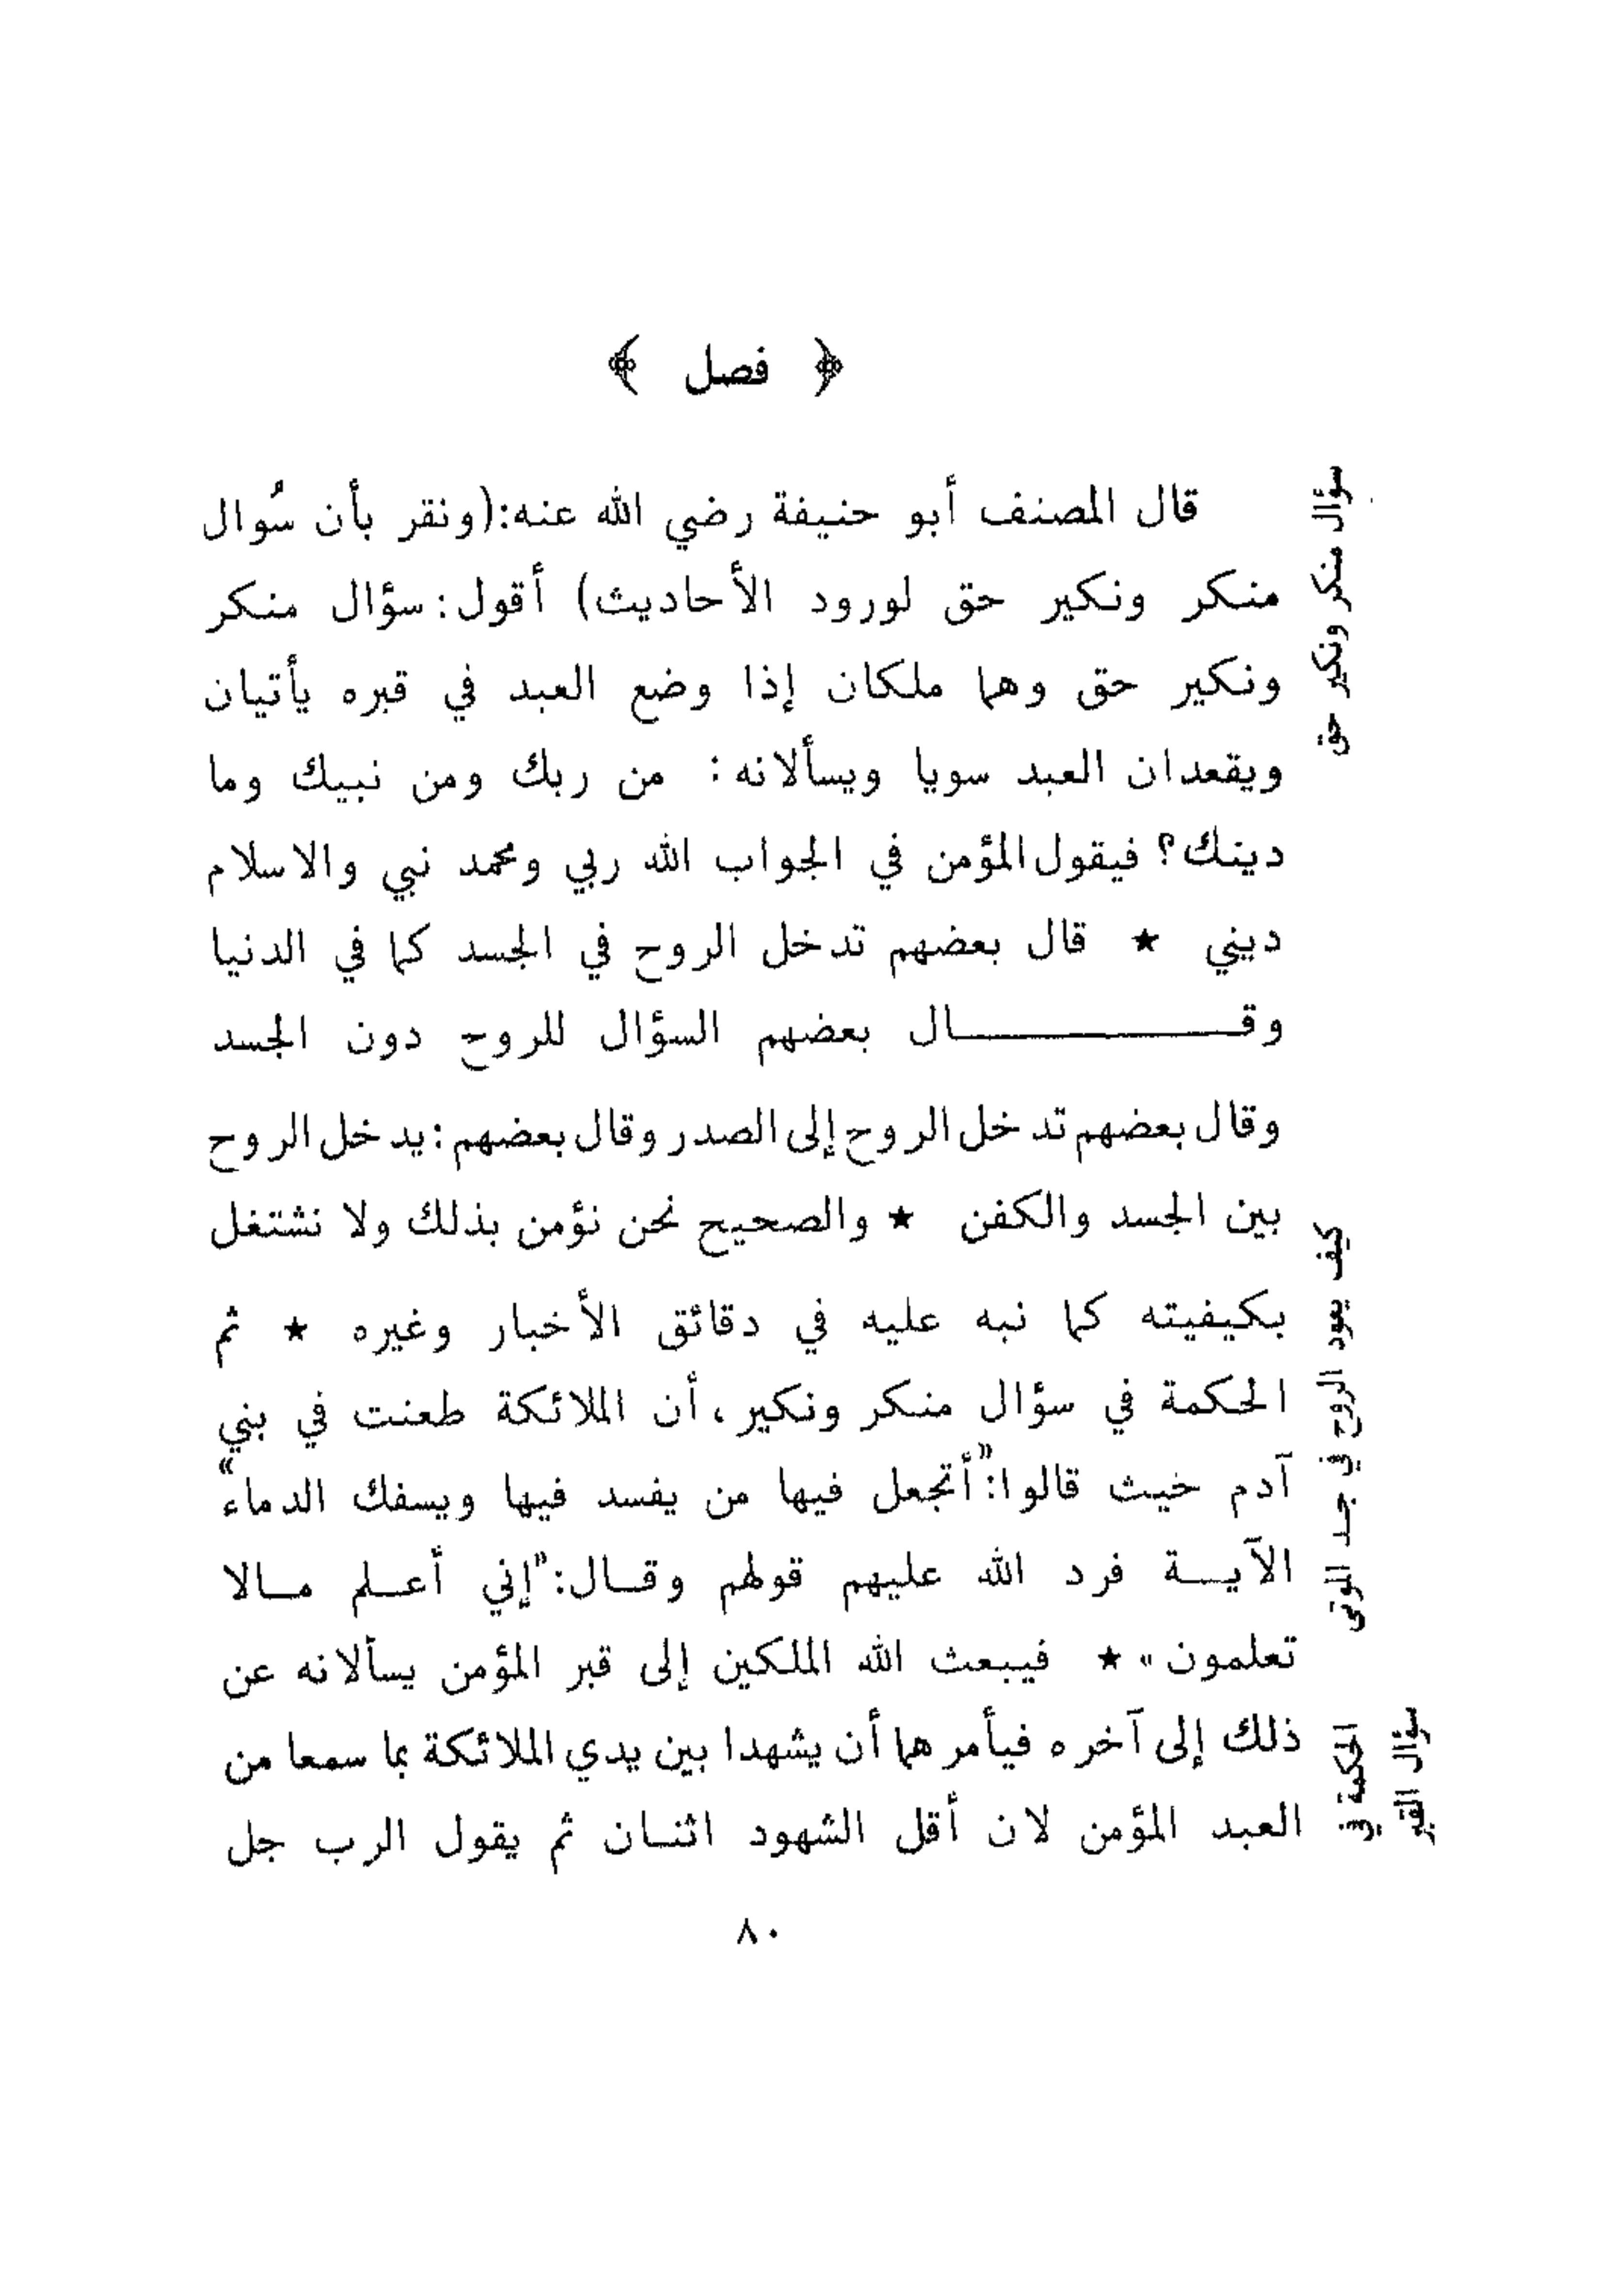 ﴿ فصل ﴾
قال المصنف أبو حنيفة رضي الله عنه:(ونقر بأن سُوال
منكر ونكير حق لورود الأحاديث) أقول: سؤال منكر
ونكير حق وهما ملكان إذا وضع العبد في قبره يأتيان
ويقعدان العبد سويا ويسألانه: من ربك ومن نبيك وما
دينك؟ فيقول المؤمن في الجواب الله ربي ومحمد نبي والاسلام
ديني ★ قال بعضهم تدخل الروح في الجسد كما في الدنيا
وقـــــــال بعضهم السؤال للروح دون الجسد
وقال بعضهم تدخل الروح إلى الصدر وقال بعضهم: يدخل الروح
بين الجسد والكفن ★ والصحيح نحن نؤمن بذلك ولا نشتغل
بكيفيته كما نبه عليه في دقائق الأخبار وغيره ★ ثم
الحكمة في سؤال منكر ونكير، أن الملائكة طعنت في بني
آدم خيث قالوا:"أتجعل فيها من يفسد فيها ويسفك الدماء"
الآيـــة فرد الله عليهم قولهم وقــال:"إني أعــلم مــالا
تعلمون" ★ فيبعث الله الملكين إلى قبر المؤمن يسألانه عن
ذلك إلى آخره فيأمرهما أن يشهدا بين يدي الملائكة بما سمعا من
العبد المؤمن لان أقل الشهود اثنــان ثم يقول الرب جل
سؤال منكر ونكير حق
كيف يعود الروح في جسد الموتى
الحكمة في
سؤال القبر
٨٠